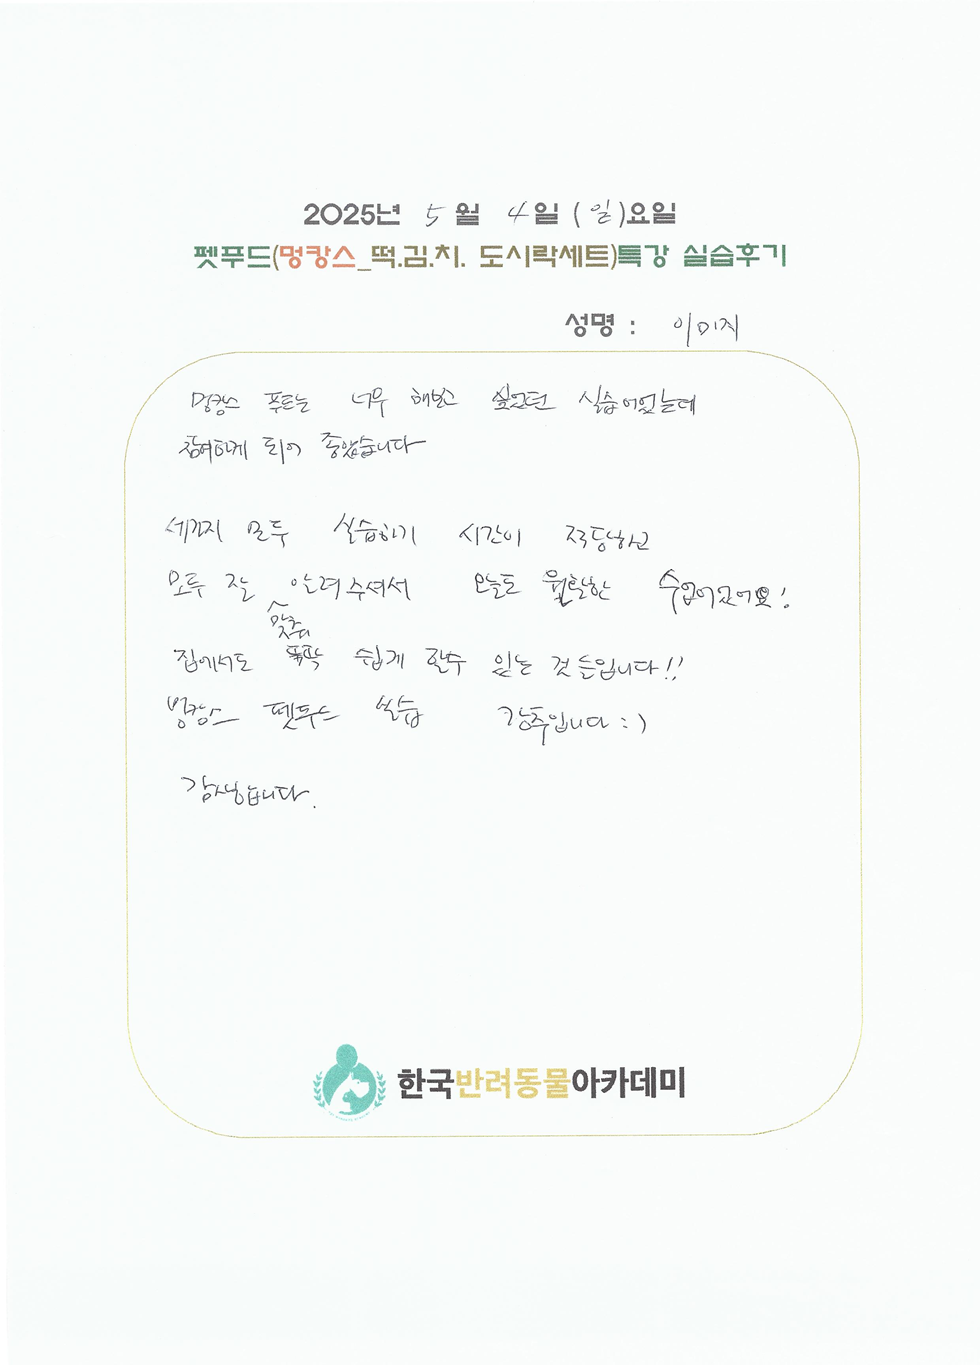 2025년 5월 4일 (일)요일
펫푸드(멍캉스_떡.김.치. 도시락세트)특강 실습후기
성명 : 이미지
멍캉스 푸드는 너무 해보고 싶었던 실습이었는데
참여하게 되어 좋았습니다
세가지 모두 실습하기 시간이 적당하고
모두 잘 알려주셔서 오늘도 원활한 수업이었어요!
맞춰
집에서도 뚝딱 쉽게 할수 있는 것 들입니다!!
멍캉스 펫푸드 실습 강추입니다 :)
감사합니다.
한국반려동물아카데미